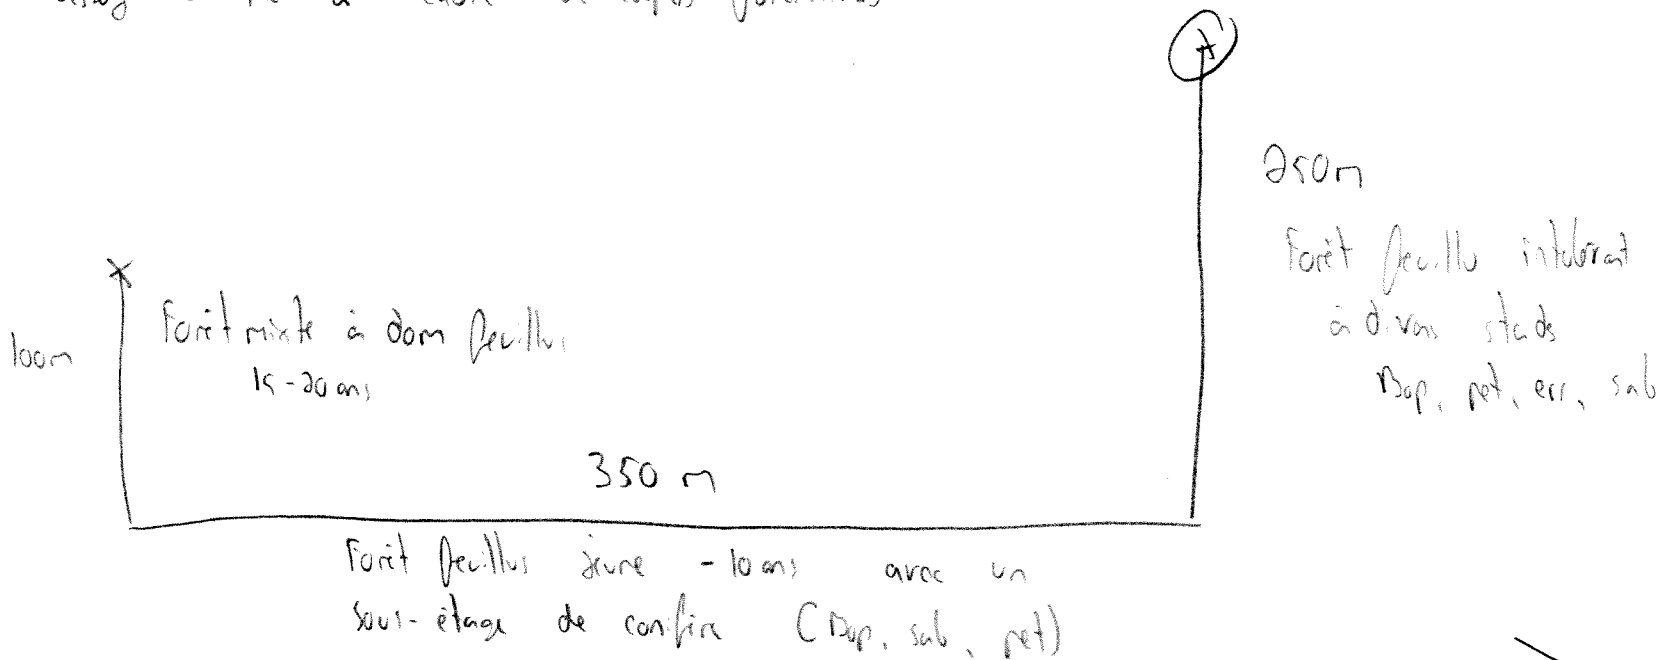 à
250m
Forêt feuillu intolérant
à divers stades
Bop, pet, err, sab
Forêt mixte à dom feuillus
15-20 ans
100m
350 m
Forêt feuillus jeune -10 ans avec un
sous-étage de conifère (Bop, sab, pet)